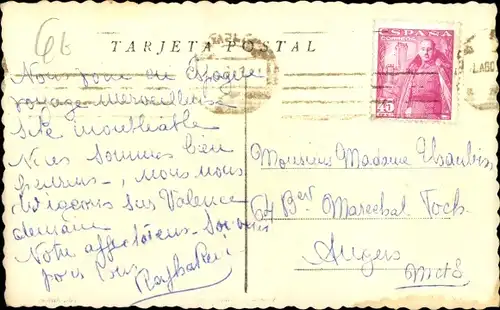 6b
TARJETA POSTAL
ESPAÑA
CORREOS
45
CTS
Nous
en Espagne
voyage merveilleux
Site inoubliable
Nous sommes bien
heureux, nous nous
dirigeons sur Valence
demain
Notre affectueux Souvenir
pour tous
Monsieur Madame
64 Bard Marechal Foch
Angers
M et L